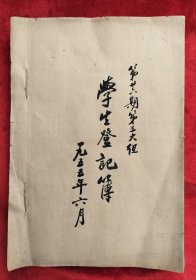 第廿六期第三大组
學生登記簿
一九五五年六月